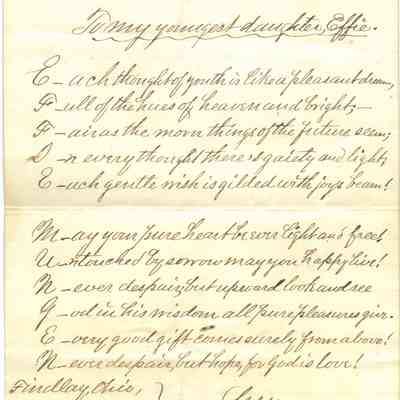 To my youngest daughter, Effie.
E-ach thought of youth is like a pleasant dream,
F-ull of the hues of heaven and bright;—
F-air as the morn things of the future seem;
I-n every thought there's gaiety and light;
E-ach gentle wish is gilded with joy's beam!
M-ay your pure heart be ever light and free!
U-ntouched by sorrow may you happy live!
N-ever despair, but upward look and see
G-od in his wisdom all pure pleasures give.
E-very good gift comes surely from above!
N-ever despair, but hope, for God is love!
Findlay, Ohio,